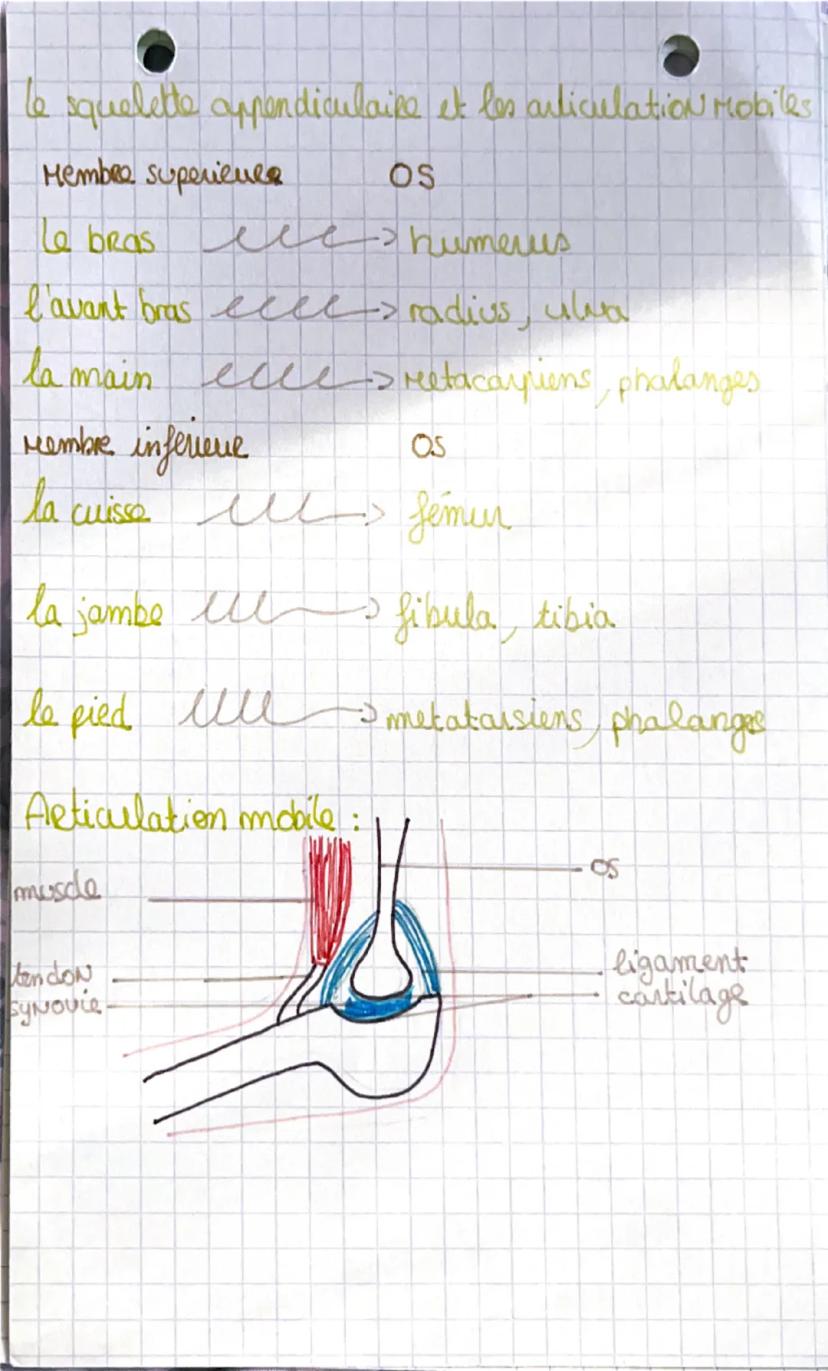 le squelette appendiculaire et les articulation mobiles
Membre superieure OS
le bras humerus
l'avant bras radius, ulna
la main metacarpiens, phalanges
Membre inférieure OS
la cuisse fémur
la jambe fibula, tibia
le pied metatarsiens, phalanges
Articulation mobile :
os
muscle
tendon ligament
synovie cartilage